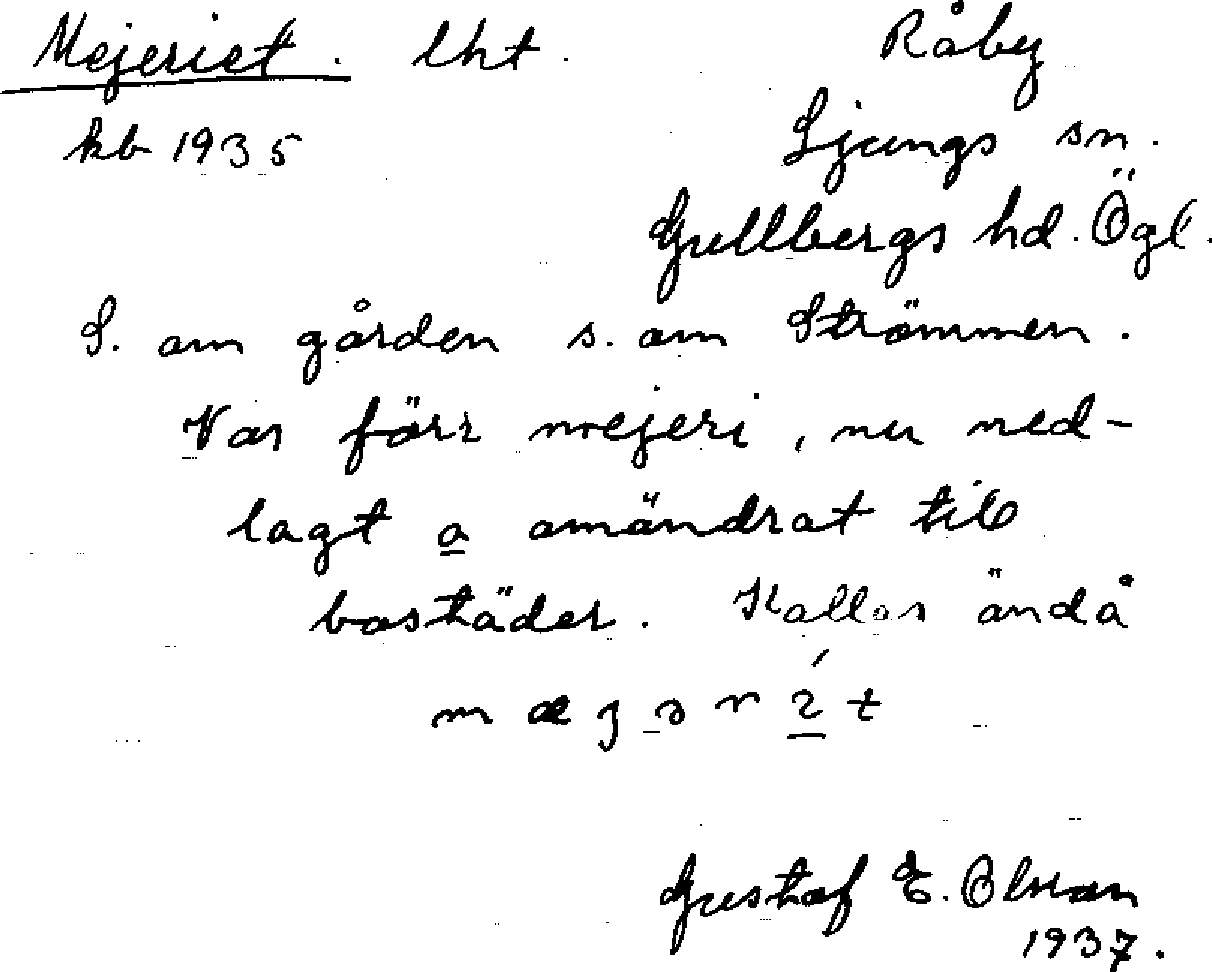 Mejeriet. lht. Råby
kb 1935 Ljungs sn.
Gullbergs hd. Ögl.
S. om gården s. om Strömmen.
Var förr mejeri, nu ned-
lagt o omändrat till
bostäder. Kallas ändå
Gustaf E. Olsson
1937.